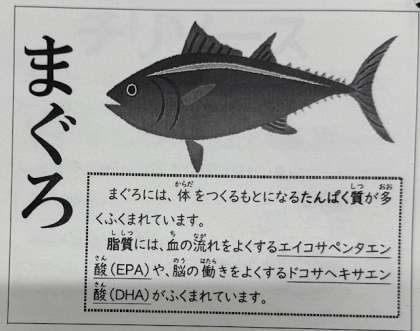 まぐろ
まぐろには、体をつくるもとになるたんぱく質が多
くふくまれています。
脂質には、血の流れをよくするエイコサペンタエン
酸(EPA)や、脳の働きをよくするドコサヘキサエン
酸(DHA)がふくまれています。